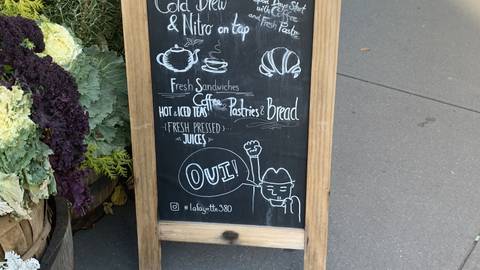 Cold Brew
& Nitro on tap
with Coffee
and Fresh Pastry
Fresh Sandwiches
Coffee
Hot & Iced Teas Pastries & Bread
{Fresh Pressed}
Juices
OUI!
#lafayette380